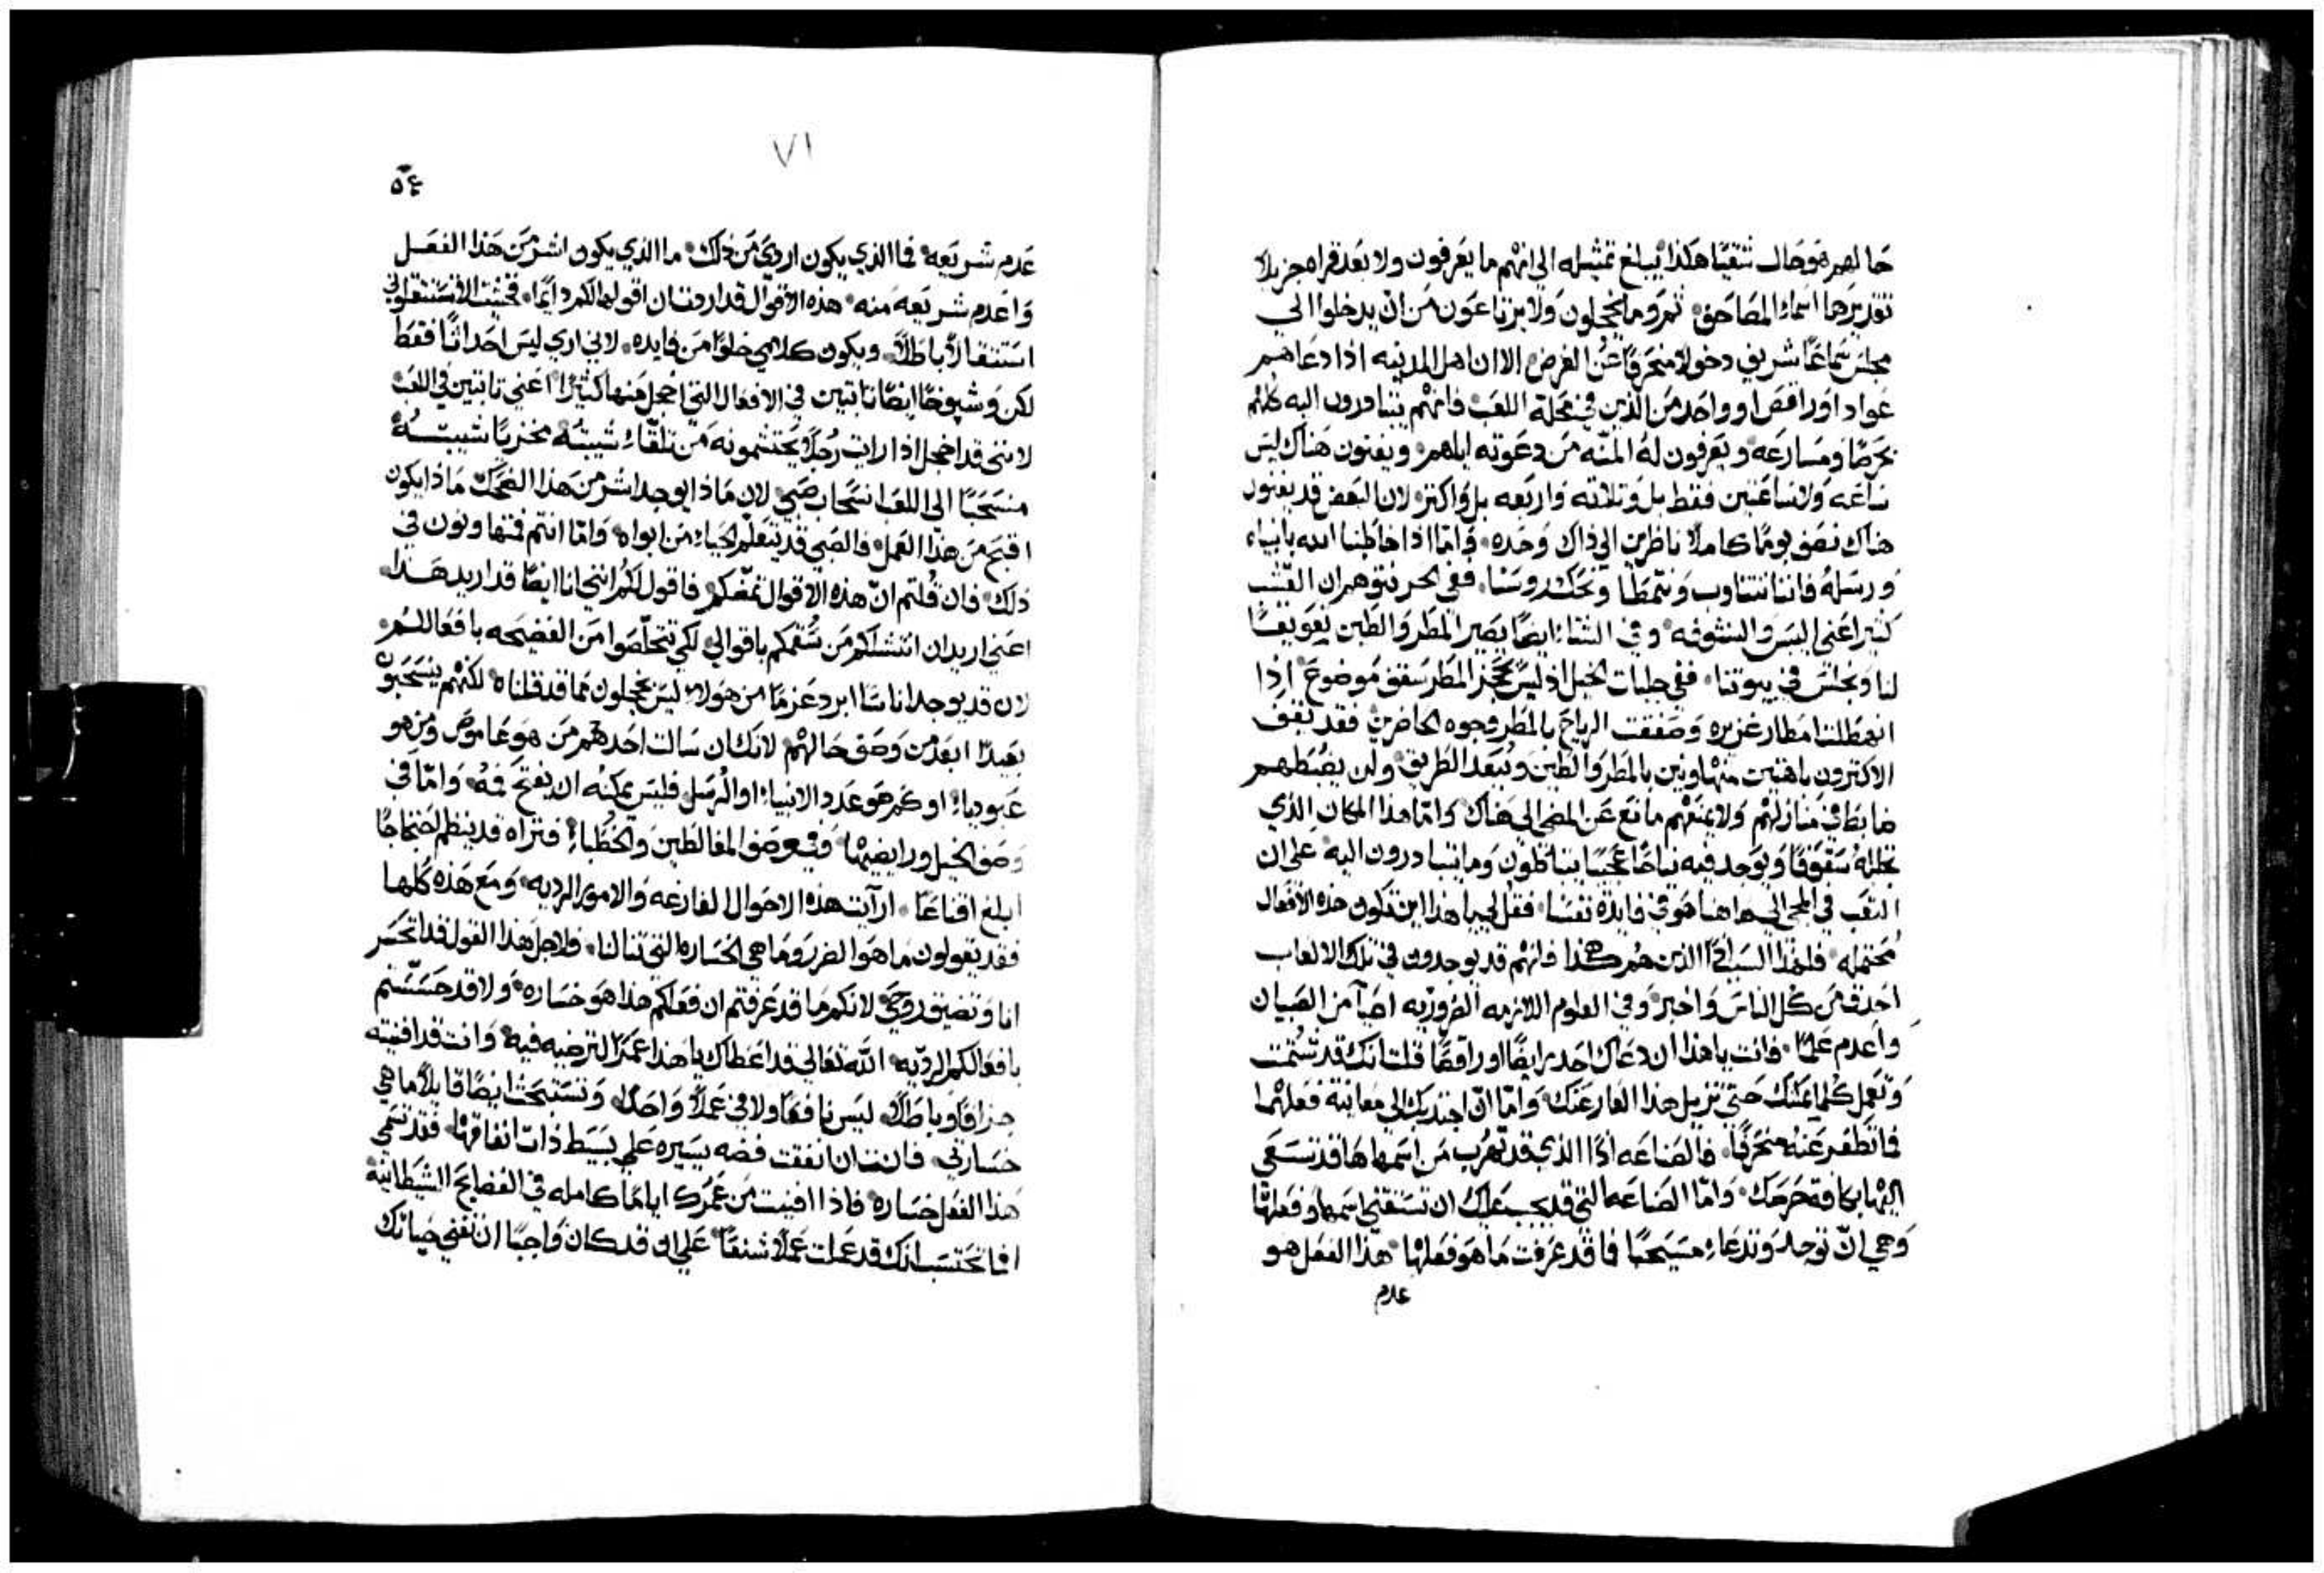 حالهم هو حال شقيًا هكذا يبلغ تمثيله الي انهم ما يعرفون ولا بعد قراه جزيلا
اسماء المصاحف ثم وما يخجلون ولا يرتاعون من ان يدخلوا الي
مجلس سماعًا شريف دخولا منحرفًا عن الغرض الا ان اهل المدينه اذا دعاهم
عواد او راقص او واحد من الذين في محلة اللعب فانهم يتبادرون اليه كلهم
بحرصًا ومسارعه ويعرفون له المنّه من دعوته اياهم ويفنون هناك ليس
ساعه ولا ساعتين فقط بل وثلاثه واربعه بل واكثر لان البعض قد يفنون
هناك نصف يومًا كاملا ناظرين الي ذاك وحده واما اذا خاطبنا الله بانبياه
ورسله فاننا نتثاوب ونتمطا ونحك روسنا ففي الحر نتوهم ان القشب
كثير اعني اليبس والنشوفه وفي الشتاء ايضًا يصير المطر والطين تعويقًا
لنا ونجلس في بيوتنا ففي حلبات الخيل اذ ليس يحجز المطر سقف موضوع اذا
انهطلت امطار غزيره وصفقت الرياح بالمطر وجوه الحاضرين فقد يقف
الاكثرون باهتين متهاونين بالمطر والطين وببعد الطريق ولن يضبطهم
ضابط في منازلهم ولا يمنعهم مانع عن المضي الي هناك واما هذا المكان الذي
تجلله سقوفًا ويوجد فيه مناخًا عجيبًا يتباطون وما يتبادرون اليه علي ان
التعب في المجي الي هاهنا هو في فايدة نفسنا فقل لي يا هذا اين تكون هذه الافعال
محتمله فلهذا السبب الذين هم هكذا فانهم قد يوجدون في تلك الالعاب
احدق من كل الناس واخبر وفي العلوم اللازمه الضروريه اصبا من الصبيان
واعدم علمًا فانت يا هذا ان دعاك احد رايضًا او راقصًا قلت انك قد شُتمت
وتعمل كلما يمكنك حتي تزيل هذا العار عنك واما ان اجتذبك الي معاينة فعلهما
فما تطفر عنه منحرفًا فالصناعه اذًا الذي قد تهرب من اسمها ها قد تسعي
اليها بكافة حرصك واما الصناعه التي قد يجب عليك ان تستقني اسمها وفعلها
وهي ان توجد وتدعاء مسيحيًا فما قد عرفت ما هو فعلها هذا الفعل هو
عدم
٧١
٥٤
عدم شريعه فما الذي يكون اردي من ذلك ما الذي يكون اشر من هذا الفعل
واعدم شريعه منه هذه الاقوال قد اردت ان اقولها لكم دايمًا فخشيت الا تستثقلوني
استثقالا باطلا ويكون كلامي خلوًا من فايده لاني اري ليس احداثًا فقط
لكن وشيوخًا ايضًا ثابتين في الافعال التي اخجل منها كثيرًا اعني ثابتين في اللعب
لانني قد اخجل اذا رايت رجلًا يحتشمونه من تلقاء شيبته مخزيًا شيبته
منسحبًا الي اللعب انسحاب صبي لان ماذا يوجد اشر من هذا الضحك ماذا يكون
اقبح من هذا العمل فالصبي قد يتعلم الحياء من ابواه واما انتم فمتهاونون في
ذلك فان قلتم ان هذه الاقوال تمغصكم فاقول لكم انني انا ايضًا قد اريد هذا
اعني اريد ان انتشلكم من سُقمكم باقوالي لكي تتخلصوا من الفضيحه بافعالكم
لان قد يوجد اناسًا ابرد عزمًا من هولاء ليس يخجلون مما قد قلناه لكنهم ينسحبون
بعيدًا ابعد من وصف حالهم لانك ان سالت احدهم من هو عاموص ومن هو
عبودياء او كم هو عدد الانبياء او الرسل فليس يمكنه ان يفتح فمه واما في
وصف الخيل ورايضيها وفي عوض المغالطين والخطباء فتراه قد ينظم احتجاجًا
ابلغ اقناعًا ارايت هذه الاحوال الفارغه والامور الرديه ومع هذه كلها
فقد يقولون ما هو الضرر وما هي الخساره التي تنالنا فلاجل هذا القول قد اتحسر
انا وتضيق روحي لانكم ما قد عرفتم ان فعلكم هذا هو خساره ولا قد حسستم
بافعالكم الرديه الله تعالي قد اعطاك يا هذا عمرًا لترضيه فيه وانت قد افنيته
جزافًا وباطلا ليس نافعًا ولا في عملا واحدًا وتستبحث ايضًا قايلًا ما هي
خسارتي فانت ان انفقت فضه يسيره علي بسيط ذات انفاقها فقد تسمي
هذا الفعل خساره فاذا افنيت من عمرك ايامًا كامله في الفضايح الشيطانيه
افما تحتسب انك قد عملت عملًا شنعًا علي ان قد كان واجبًا ان تفني حياتك